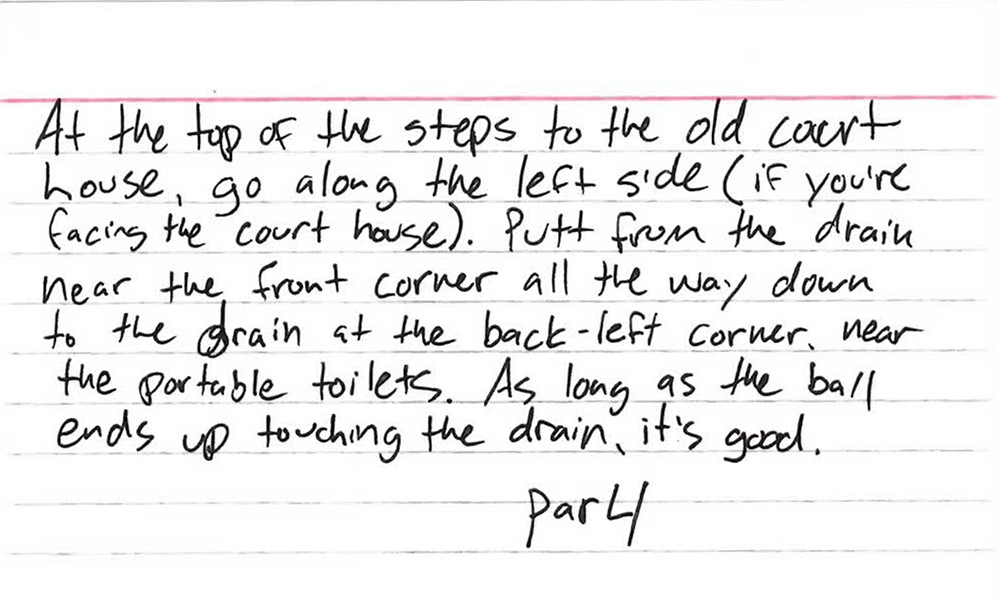 At the top of the steps to the old court
house, go along the left side (if you're
facing the court house). Putt from the drain
near the front corner all the way down
to the drain at the back-left corner, near
the portable toilets. As long as the ball
ends up touching the drain, it's good.
Par 4